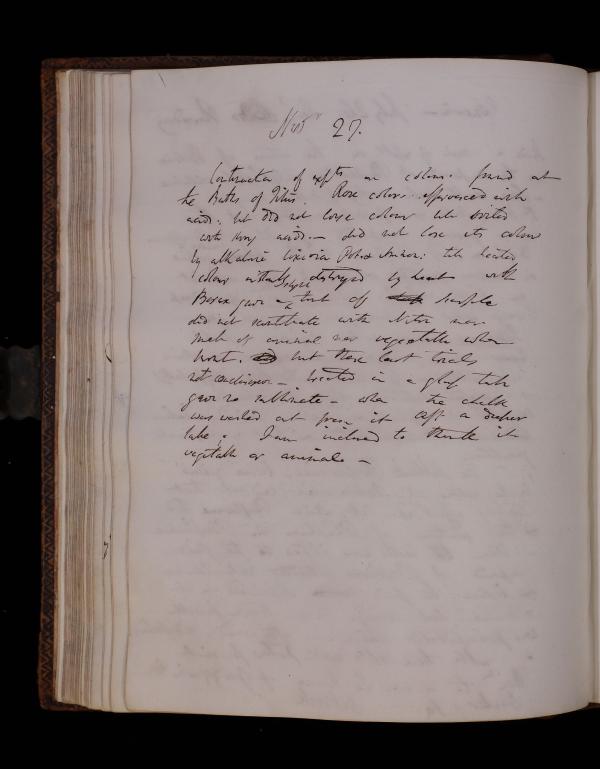 Novr 27.
Continuation of expts on colours found at
the Baths of Titus. Rose colour effervesced with
acids: but did not lose colour till boiled
with strong acids. — did not lose its colour
by alkaline lixivia Potash Ammon: till heated
colour entirely destroyed by heat with
Borax gave a tint of purple
did not scintillate with Nitre nor
smell of animal nor vegetable when
burnt. but these last trials
not conclusive — heated in a glass tube
gave no sublimate — when the chalk
was washed out from it left a deeper
lake: I am inclined to think it
vegetable or animal —